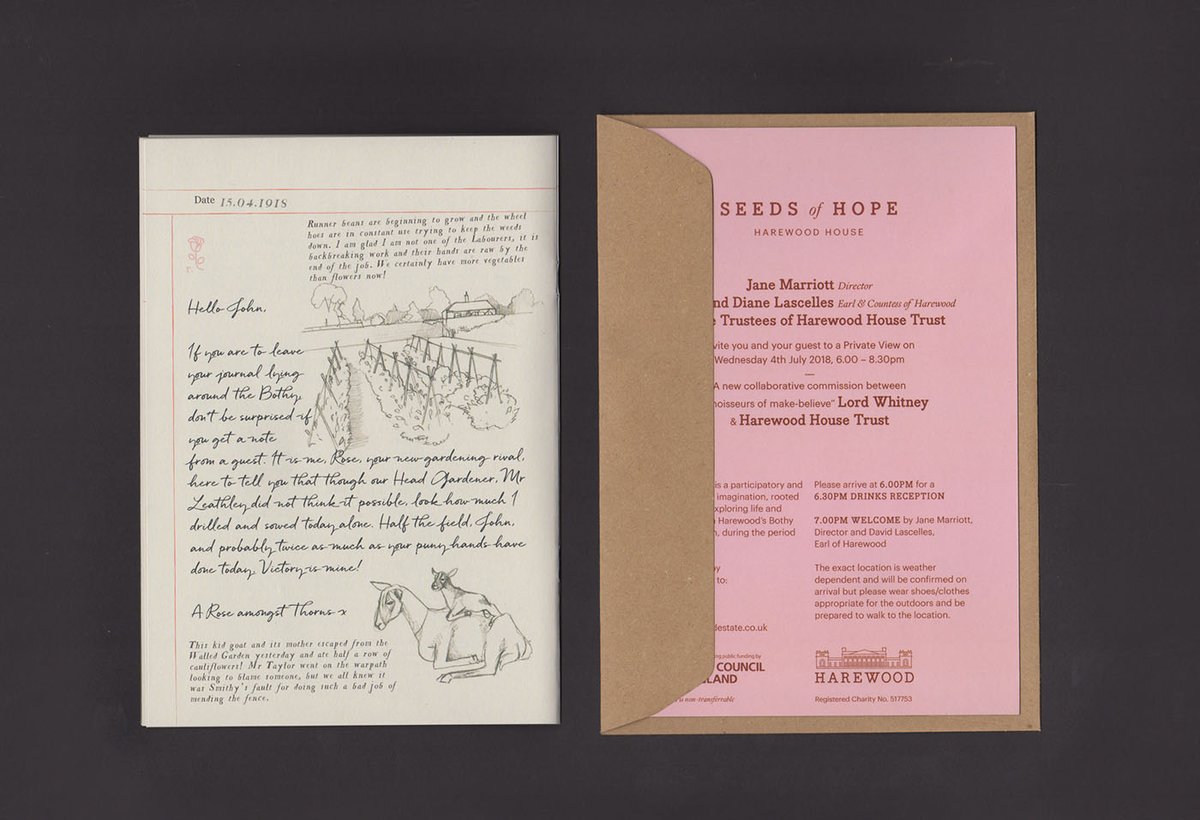 Date 15.04.1918
Runner beans are beginning to grow and the wheel
hoes are in constant use trying to keep the weeds
down. I am glad I am not one of the Labourers, it is
backbreaking work and their hands are raw by the
end of the job. We certainly have more vegetables
than flowers now!
Hello John,
If you are to leave
your journal lying
around the Bothy,
don't be surprised if
you get a note
from a guest. It is me, Rose, your new gardening rival,
here to tell you that though our Head Gardener, Mr
Leathley did not think it possible, look how much I
drilled and sowed today alone. Half the field, John,
and probably twice as much as your puny hands have
done today. Victory is mine!
A Rose amongst Thorns x
This kid goat and its mother escaped from the
Walled Garden yesterday and ate half a row of
cauliflowers! Mr Taylor went on the warpath
looking to blame someone, but we all knew it
was Smithy's fault for doing such a bad job of
mending the fence.
SEEDS of HOPE
HAREWOOD HOUSE
Jane Marriott Director
nd Diane Lascelles Earl & Countess of Harewood
e Trustees of Harewood House Trust
vite you and your guest to a Private View on
Wednesday 4th July 2018, 6.00 – 8.30pm
—
A new collaborative commission between
noisseurs of make-believe" Lord Whitney
& Harewood House Trust
is a participatory and
imagination, rooted
xploring life and
Harewood's Bothy
, during the period
by
to:
destate.co.uk
Please arrive at 6.00PM for a
6.30PM DRINKS RECEPTION
7.00PM WELCOME by Jane Marriott,
Director and David Lascelles,
Earl of Harewood
The exact location is weather
dependent and will be confirmed on
arrival but please wear shoes/clothes
appropriate for the outdoors and be
prepared to walk to the location.
ng public funding by
COUNCIL
LAND
is non-transferrable
HAREWOOD
Registered Charity No. 517753